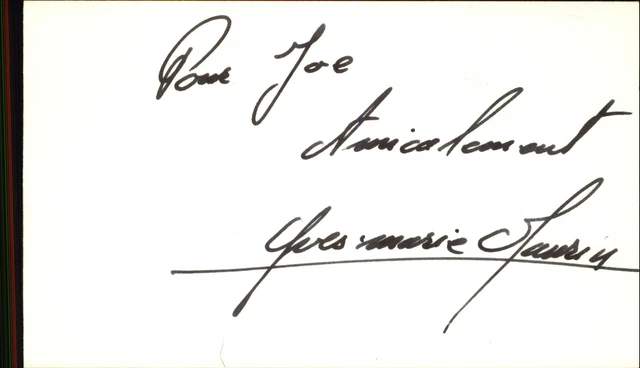 Pour Joe
Amicalement
Yves-marie Maurin